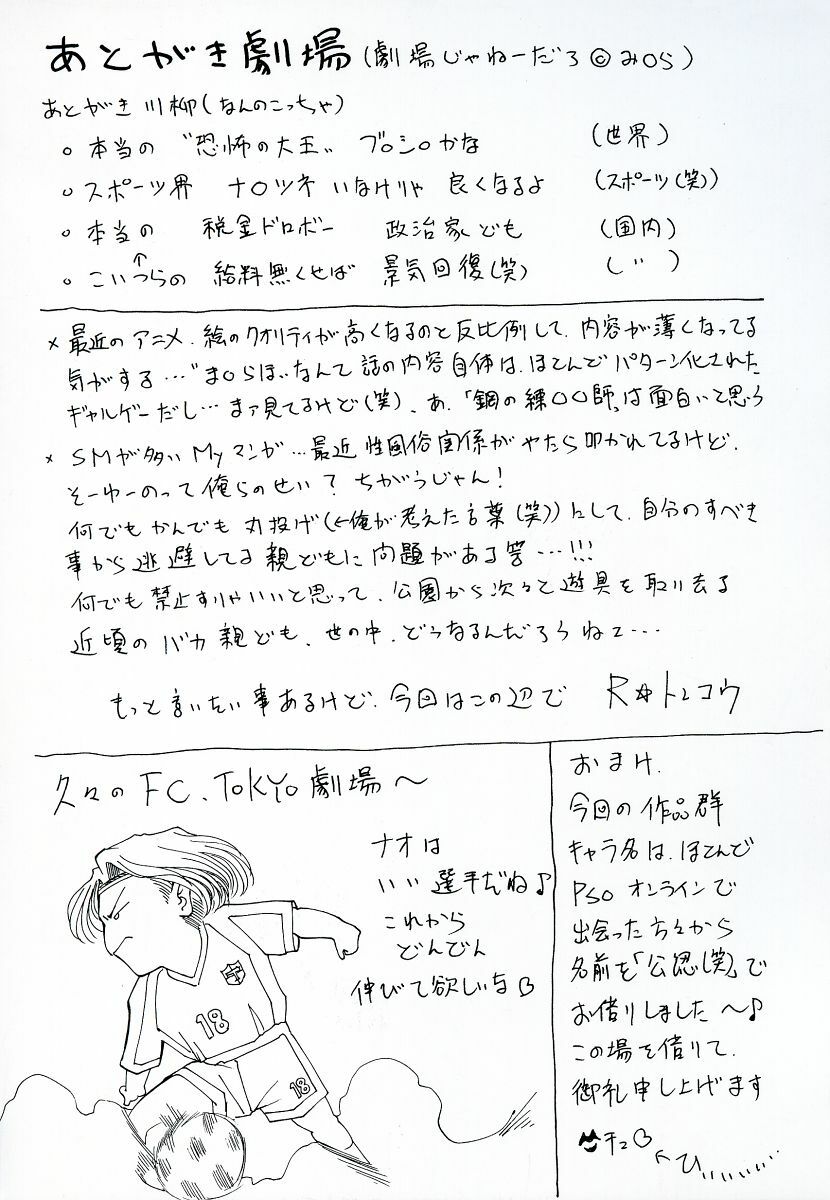 あとがき劇場(劇場じゃねーだろ©み○ら)
あとがき川柳(なんのこっちゃ)
○本当の "恐怖の大王" ブ○シ○かな (世界)
○スポーツ界 ナ○ツネ いなけりゃ 良くなるよ (スポーツ(笑))
○本当の 税金ドロボー 政治家ども (国内)
↑
○こいつらの 給料無くせば 景気回復(笑) (〃)
×最近のアニメ、絵のクオリティが高くなるのと反比例して、内容が薄くなってる
気がする…"ま○らほ"なんて話の内容自体は、ほとんどパターン化された
ギャルゲーだし…まァ見てるけど(笑)、あ、「鋼の練○○師」は面白いと思う
×SMが多いMyマンガ…最近性風俗関係がやたら叩かれてるけど、
そーゆーのって俺らのせい?ちがうじゃん!
何でもかんでも丸投げ(←俺が考えた言葉(笑))にして、自分のすべき
事から逃避してる親どもに問題がある筈…!!!
何でも禁止すりゃいいと思って、公園から次々と遊具を取り去る
近頃のバカ親ども、世の中、どうなるんだろうねェ…
もっと言いたい事あるけど、今回はこの辺で R☆トンコウ
久々のFC、TOKYO劇場〜
ナオは
いい選手だね♪
これから
どんどん
伸びて欲しいな
18
18
おまけ、
今回の作品群
キャラ名は、ほとんど
PSOオンラインで
出会った方々から
名前を「公認(笑)」で
お借りしました〜♪
この場を借りて、
御礼申し上げます
チュ
←ひ